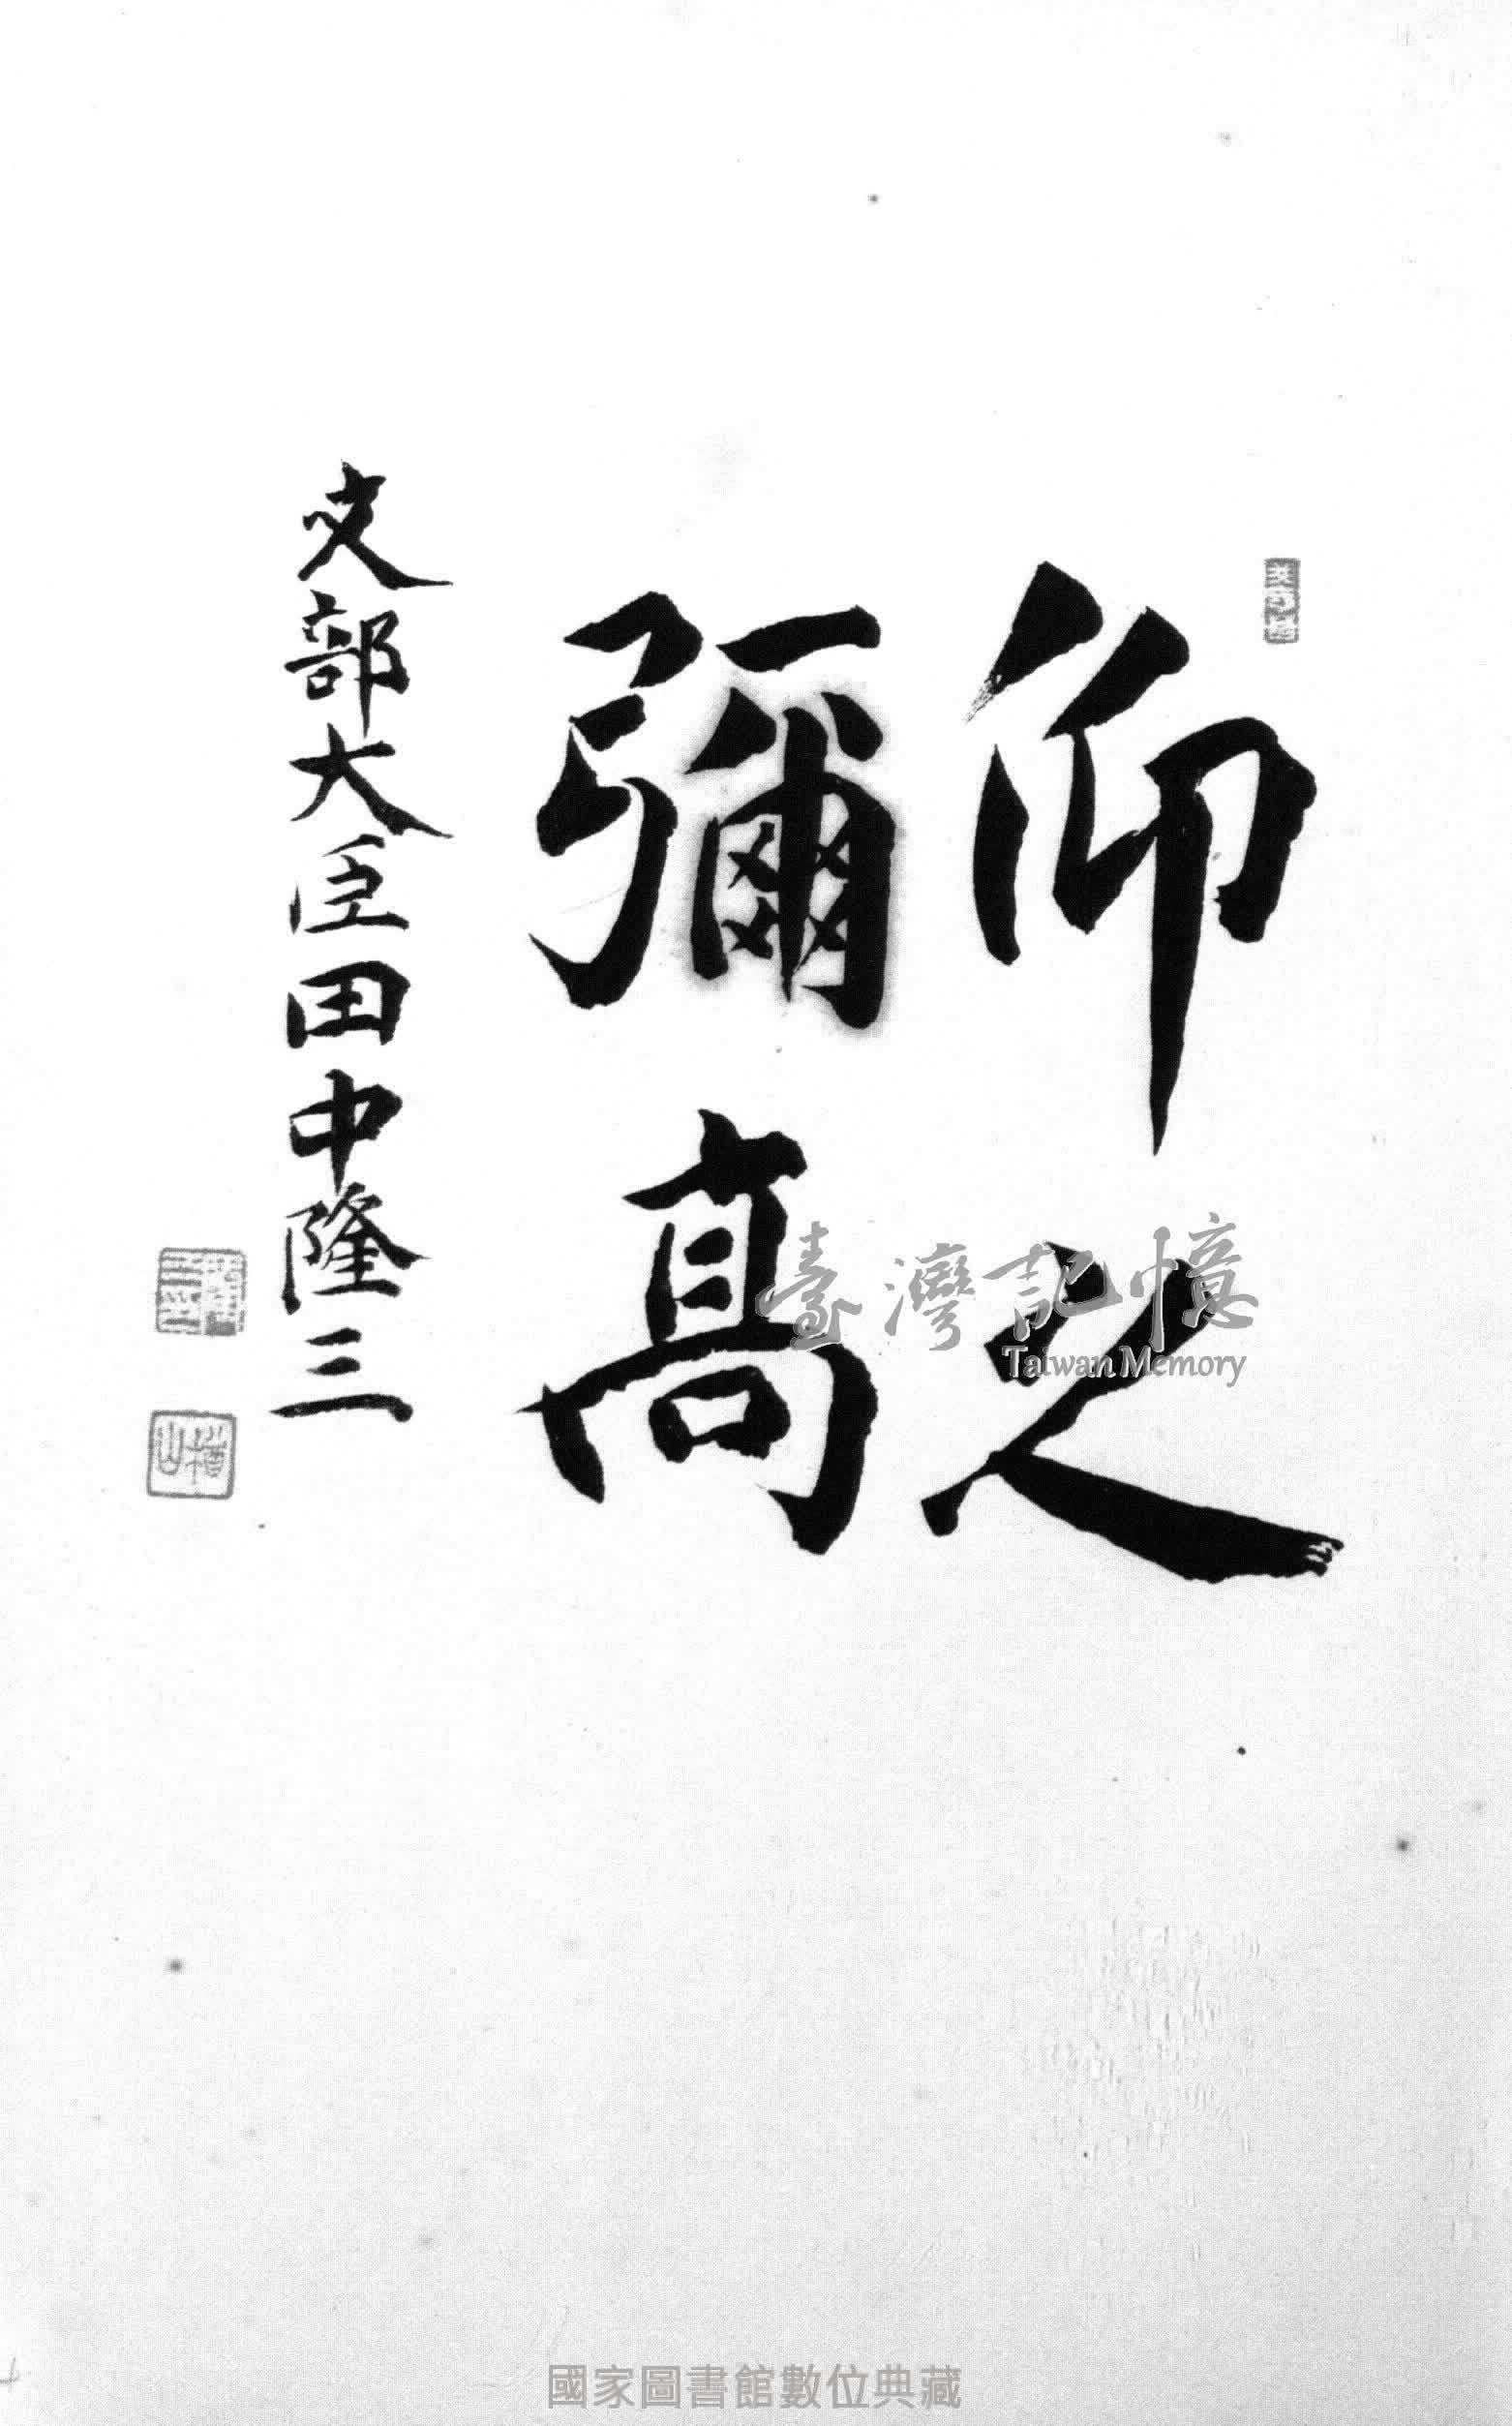 仰之
彌高
文部大臣田中隆三
臺灣記憶
Taiwan Memory
國家圖書館數位典藏